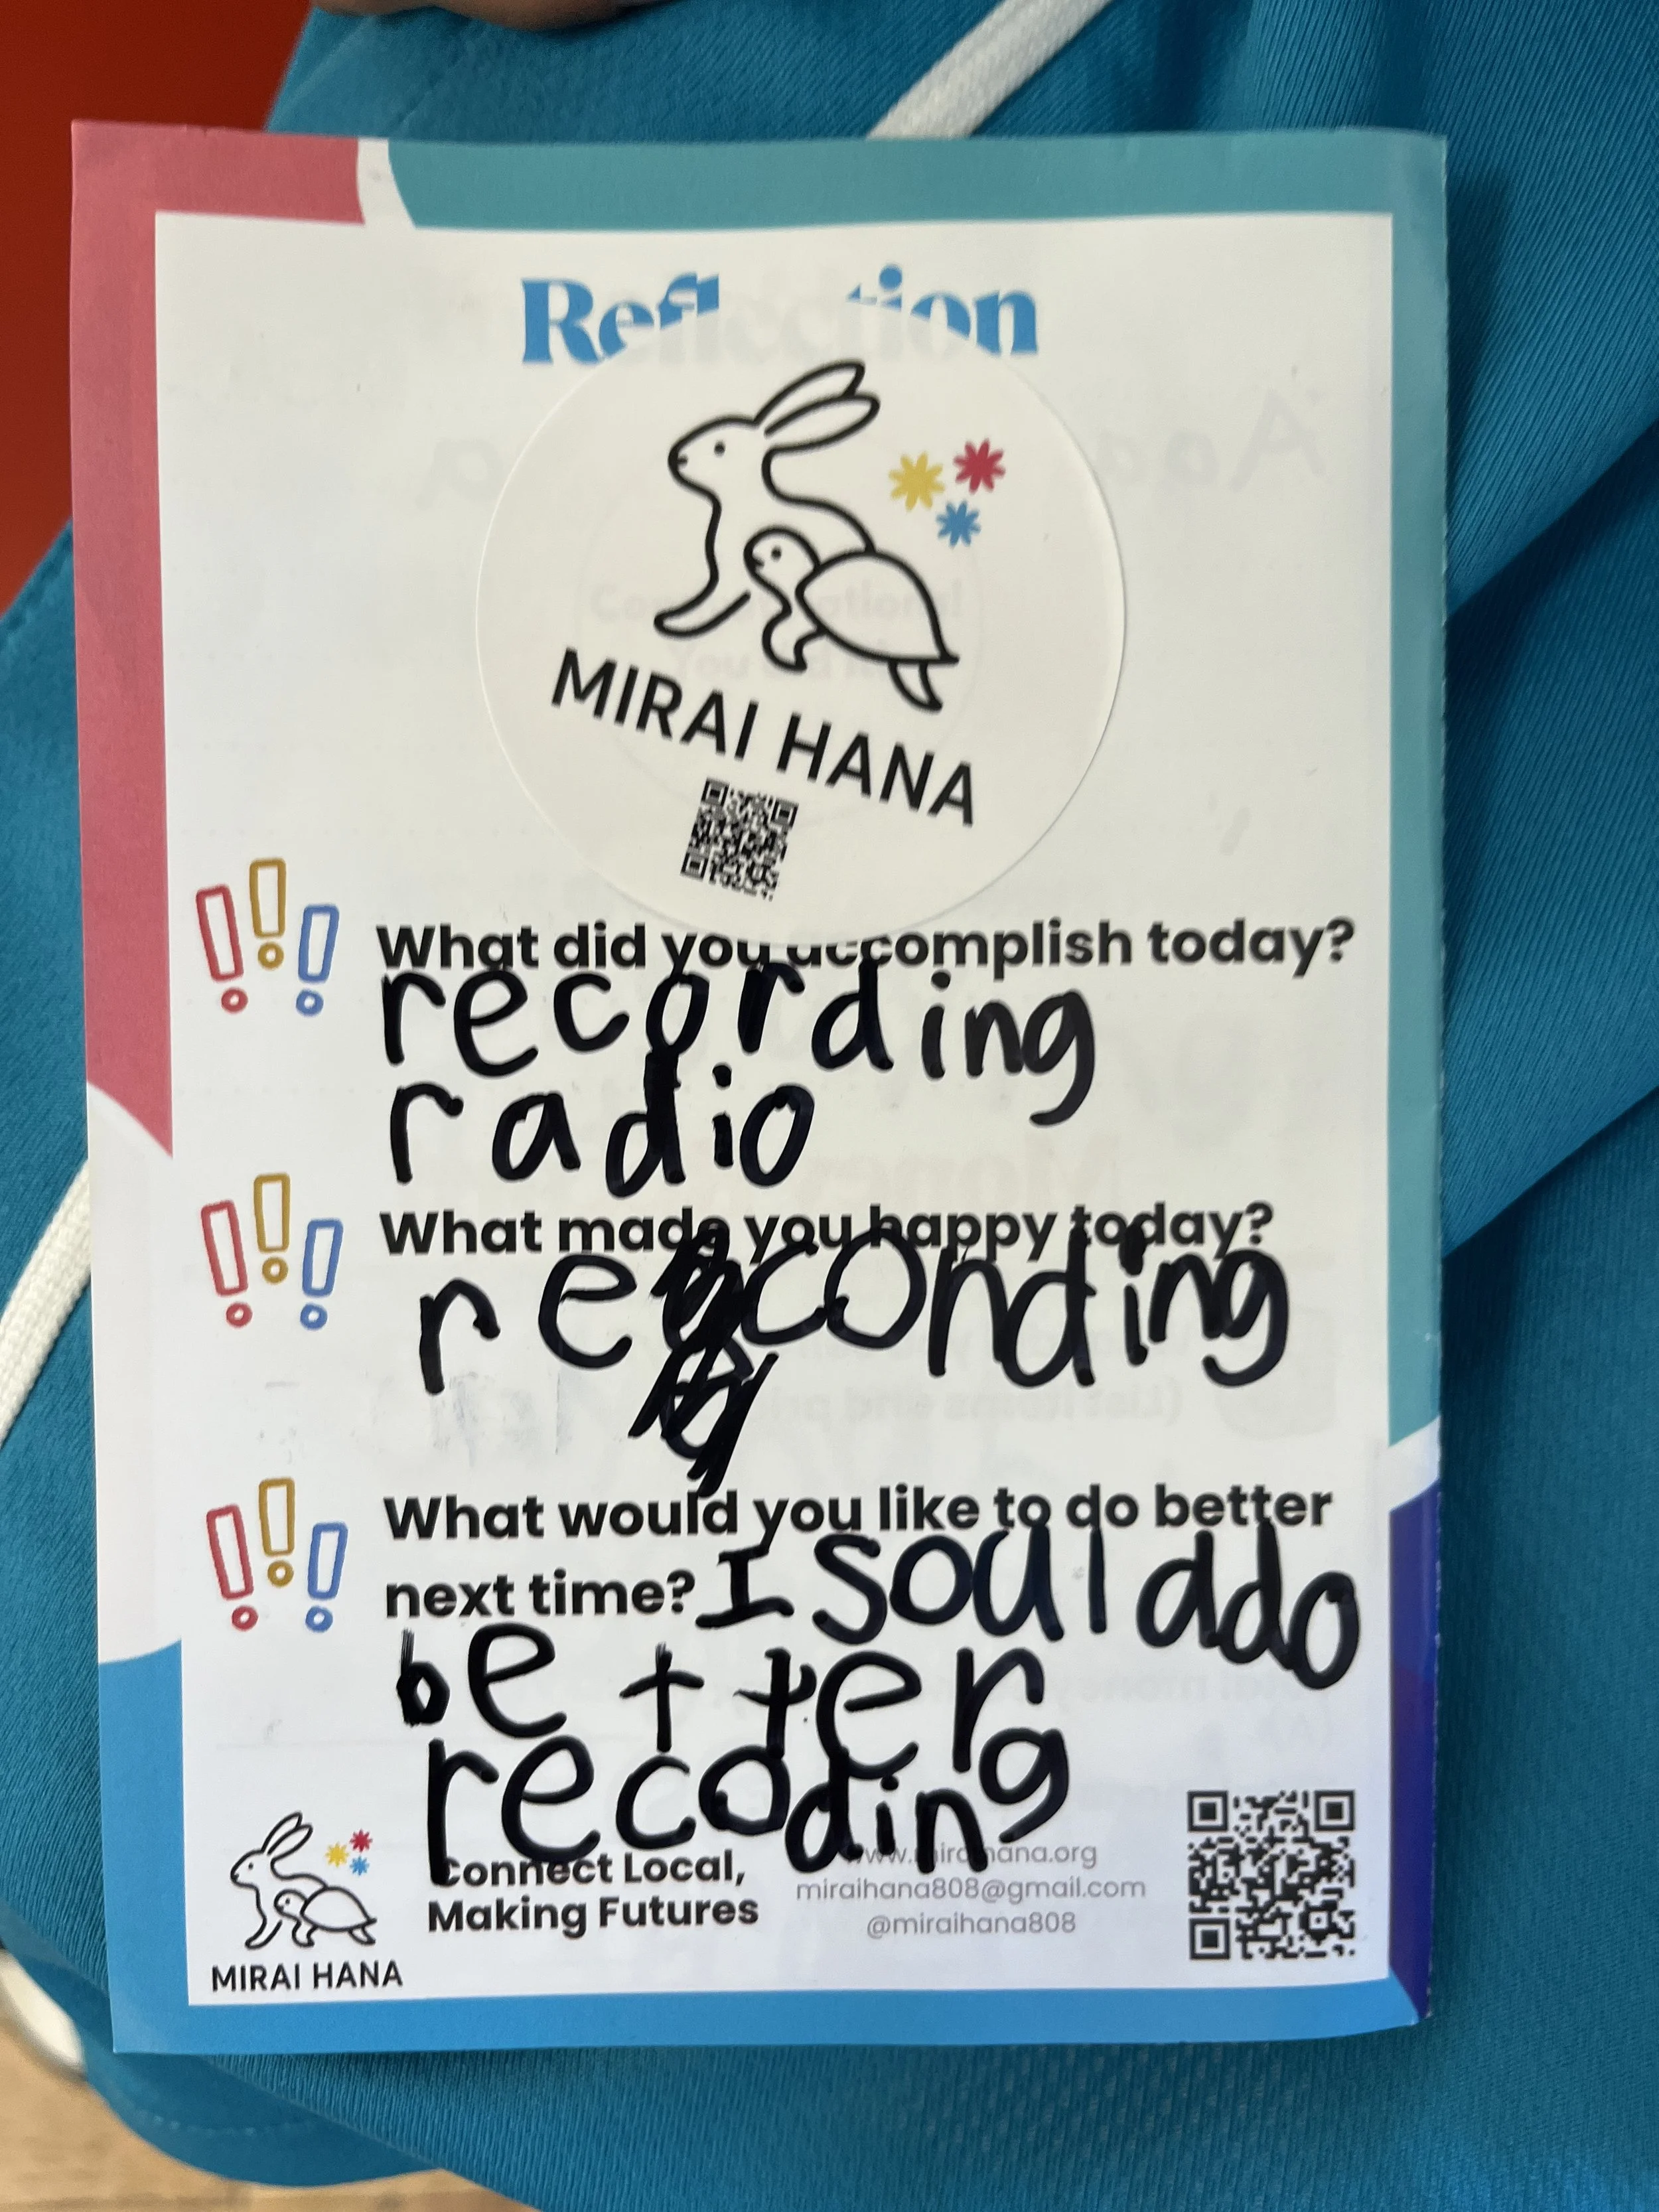 Reflection
MIRAI HANA
What did you accomplish today?
recording
radio
What made you happy today?
reconding
What would you like to do better
next time? I soul ddo
better
recoding
Connect Local,
Making Futures
www.miraihana.org
miraihana808@gmail.com
@miraihana808
MIRAI HANA